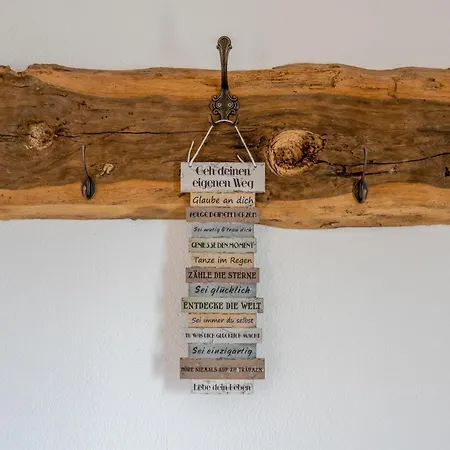 Geh deinen
eigenen Weg
Glaube an dich
FOLGE DEINEM HERZEN
Sei mutig & trau dich
GENIESSE DEN MOMENT
Tanze im Regen
ZÄHLE DIE STERNE
Sei glücklich
ENTDECKE DIE WELT
Sei immer du selbst
TU WAS DICH GLÜCKLICH MACHT
Sei einzigartig
HÖRE NIEMALS AUF ZU TRÄUMEN
Lebe dein Leben